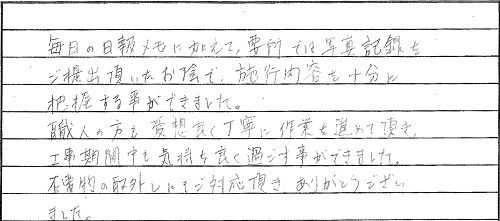 毎日の日報メモに加えて、要所では写真記録を
ご提出頂いたお陰で、施行内容を十分に
把握する事ができました。
職人の方も愛想良く丁寧に作業を進めて頂き、
工事期間中も気持ち良く過ごす事ができました。
の取外しにもご対応頂き、ありがとうござい
ました。